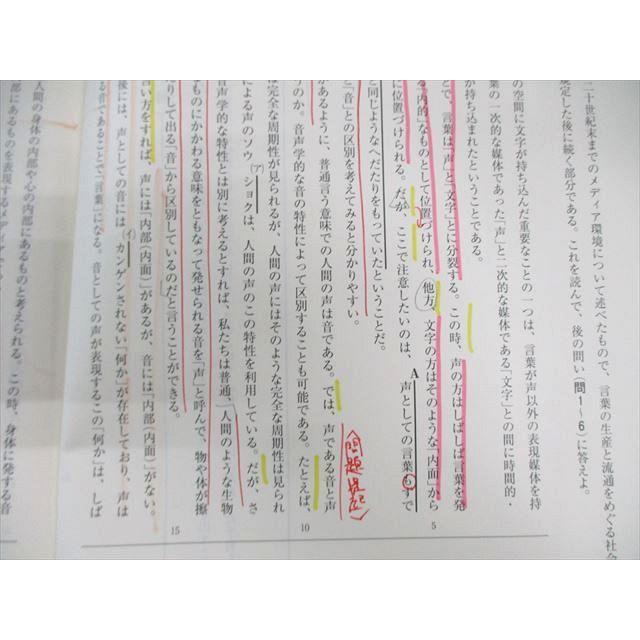 二十世紀末までのメディア環境について述べたもので、言葉の生産と流通をめぐる社会
規定した後に続く部分である。これを読んで、後の問い(問1~6)に答えよ。
の空間に文字が持ち込んだ重要なことの一つは、言葉が声以外の表現媒体を持
葉の一次的な媒体であった「声」と二次的な媒体である「文字」との間に時間的・
が持ち込まれたということである。
とで、言葉は「声」と「文字」とに分裂する。この時、声の方はしばしば言葉を発
5
る「内的」なものとして位置づけられ、他方、文字の方はそのような「内面」から
に位置づけられる。だが、ここで注意したいのは、A声としての言葉もすで
と同じようなへだたりをもっていたということだ。
と「音」との区別を考えてみると分かりやすい。
問題提起
があるように、普通言う意味での人間の声は音である。では、声である音と声
うのか。音声学的な音の特性によって区別することも可能である。たとえば、
10
は完全な周期性が見られるが、人間の声にはそのような完全な周期性は見られ
による声のソウ(ア)ショクは、人間の声のこの特性を利用している。だが、さ
音声学的な特性とは別に考えるとすれば、私たちは普通、「人間のような生物
ものにかかわる意味をともなって発せられる音を「声」と呼んで、物や体が擦
たりして出る「音」から区別しているのだと言うことができる。
15
言い方をすれば、声には「内部(内面)」があるが、音には「内部(内面)」がない。
後には、声としての音には(イ)カンゲンされない「何か」が存在しており、声は
る音であることで「言葉」になる。音としての声が表現するこの「何か」は、しば
人間の身体の内部や心の内部にあるものと考えられる。この時、身体に発する音
部にあるものを表現するメディア